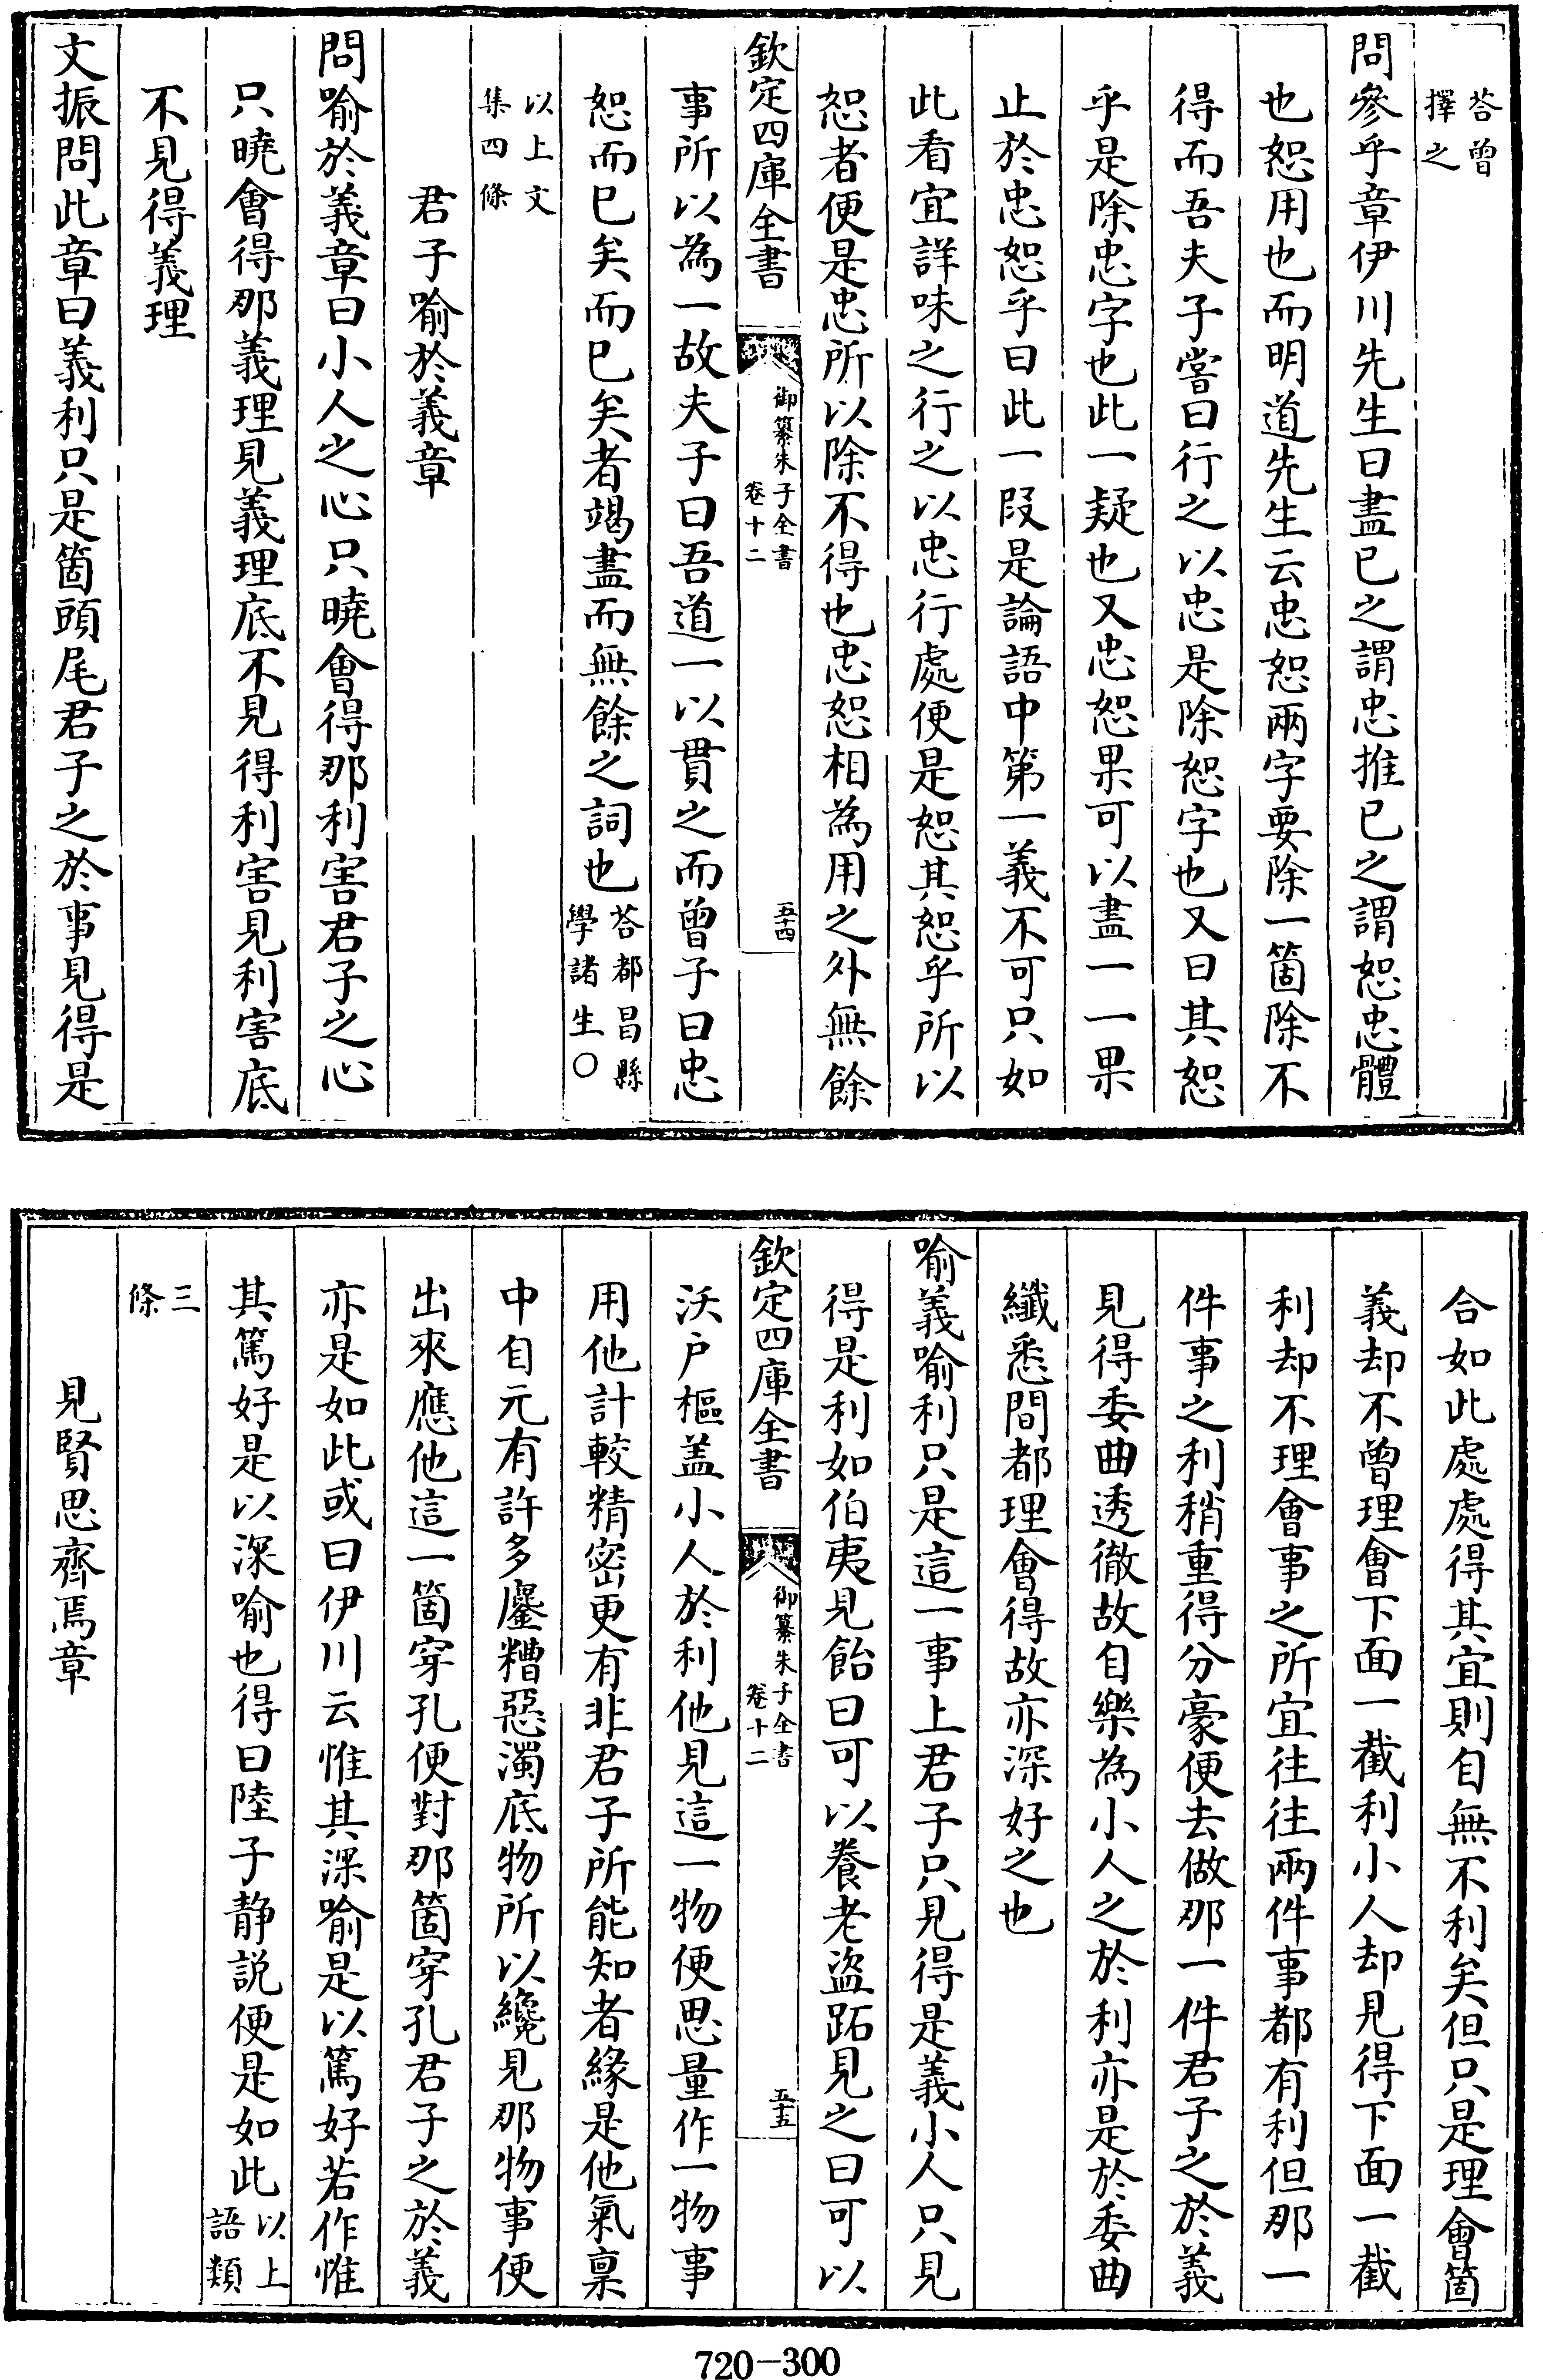 荅曾
擇之
問參乎章伊川先生曰盡已之謂忠推已之謂恕忠體
也恕用也而明道先生云忠恕兩字要除一箇除不
得而吾夫子嘗曰行之以忠是除恕字也又曰其恕
乎是除忠字也此一疑也又忠恕果可以盡一一果
止於忠恕乎曰此一段是論語中第一義不可只如
此看宜詳味之行之以忠行處便是恕其恕乎所以
恕者便是忠所以除不得也忠恕相為用之外無餘
欽定四庫全書
御纂朱子全書
卷十二
五十四
事所以為一故夫子曰吾道一以貫之而曾子曰忠
恕而已矣而已矣者竭盡而無餘之詞也荅都昌縣
學諸生○
以上文
集四條
君子喻於義章
問喻於義章曰小人之心只曉會得那利害君子之心
只曉會得那義理見義理底不見得利害見利害底
不見得義理
文振問此章曰義利只是箇頭尾君子之於事見得是
合如此處處得其宜則自無不利矣但只是理會箇
義却不曾理會下面一截利小人却見得下面一截
利却不理會事之所宜往往兩件事都有利但那一
件事之利稍重得分豪便去做那一件君子之於義
見得委曲透徹故自樂為小人之於利亦是於委曲
纎悉間都理會得故亦深好之也
喻義喻利只是這一事上君子只見得是義小人只見
得是利如伯夷見飴曰可以養老盜跖見之曰可以
欽定四庫全書
御纂朱子全書
卷十二
五十五
沃户樞盖小人於利他見這一物便思量作一物事
用他計較精密更有非君子所能知者緣是他氣稟
中自元有許多鏖糟惡濁底物所以纔見那物事便
出來應他這一箇穿孔便對那箇穿孔君子之於義
亦是如此或曰伊川云惟其深喻是以篤好若作惟
其篤好是以深喻也得曰陸子静說便是如此以上
語類
三
條
見賢思齊焉章
720-300